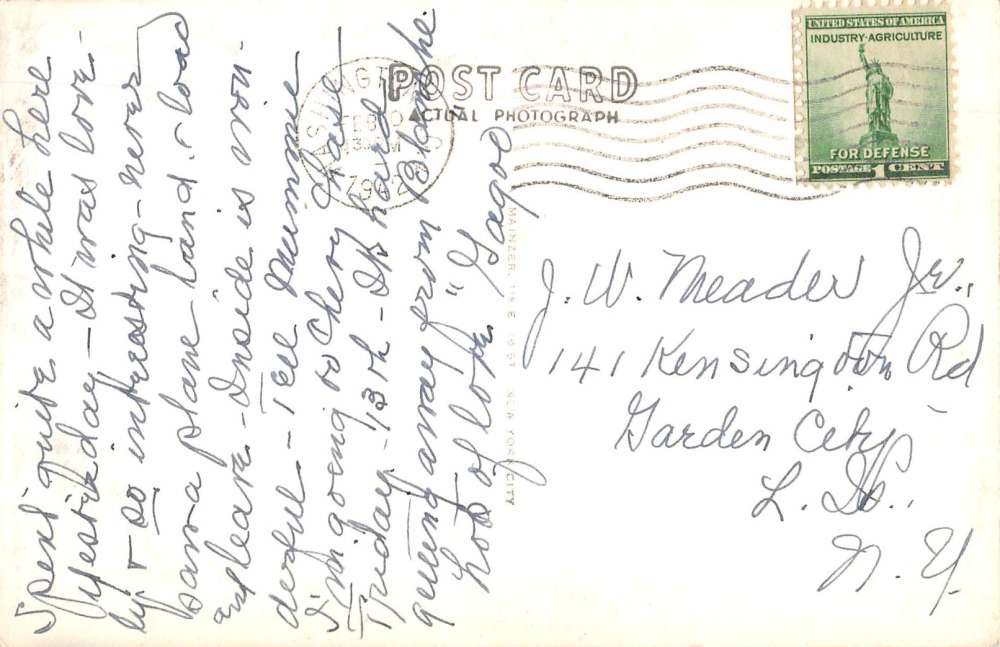 Spent quite a while here
yesterday — It was love-
ly & so interesting - never
saw a plane land & load
& leave - Inside is won-
derful - Tell Mummie
I'm going to Chevy Chase
Friday - 13th - It's hard
getting away from Blanche
Lots of love "Gago"
POST CARD
ACTUAL PHOTOGRAPH
1942
UNITED STATES OF AMERICA
INDUSTRY·AGRICULTURE
FOR DEFENSE
POSTAGE 1 CENT
MAINZER, ST. NEW YORK CITY
J. W. Meader Jr.,
141 Kensington Rd
Garden City,
L. I.,
N. Y.